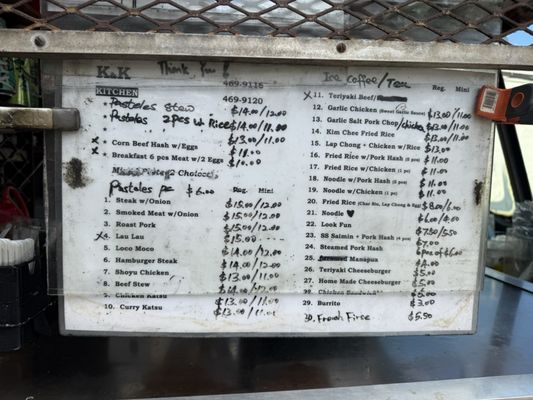 K&K
Thank You!
KITCHEN
469-9116
469-9120
Pasteles Stew $14.00/12.00
Pasteles 2pcs w Rice $14.00/11.00
x Corn Beef Hash w/Eggs $13.00/11.00
x Breakfast 6 pcs Meat w/2 Eggs $11.00
$10.00
Pasteles pc $6.00
Reg. Mini
1. Steak w/Onion $15.00/12.00
2. Smoked Meat w/Onion $15.00/12.00
3. Roast Pork $15.00/12.00
x4. Lau Lau $15.00
5. Loco Moco $14.00/12.00
6. Hamburger Steak $14.00/12.00
7. Shoyu Chicken $13.00/11.00
8. Beef Stew $14.00/12.00
9. Chicken Katsu $13.00/11.00
10. Curry Katsu $13.00/11.00
Ice Coffee/Tea
Reg. Mini
x 11. Teriyaki Beef/
12. Garlic Chicken (Sweet Garlic Sauce) $13.00/11.00
13. Garlic Salt Pork Chop/chicken $13.00/11.00
14. Kim Chee Fried Rice $13.00/11.00
15. Lap Chong + Chicken w/Rice $13.00
16. Fried Rice w/Pork Hash $11.00
17. Fried Rice w/Chicken $11.00
18. Noodle w/Pork Hash $11.00
19. Noodle w/Chicken $11.00
20. Fried Rice (Char Siu, Lap Chong & Egg) $8.00/6.00
21. Noodle ♥ $6.00/4.00
22. Look Fun $7.50/5.50
23. SS Saimin + Pork Hash $7.00
24. Steamed Pork Hash 6pcs $6.00
25. Manapua $4.00
26. Teriyaki Cheeseburger $5.00
27. Home Made Cheeseburger $5.00
28. Chicken Sandwich $5.00
29. Burrito $3.00
30. French Firee $5.50